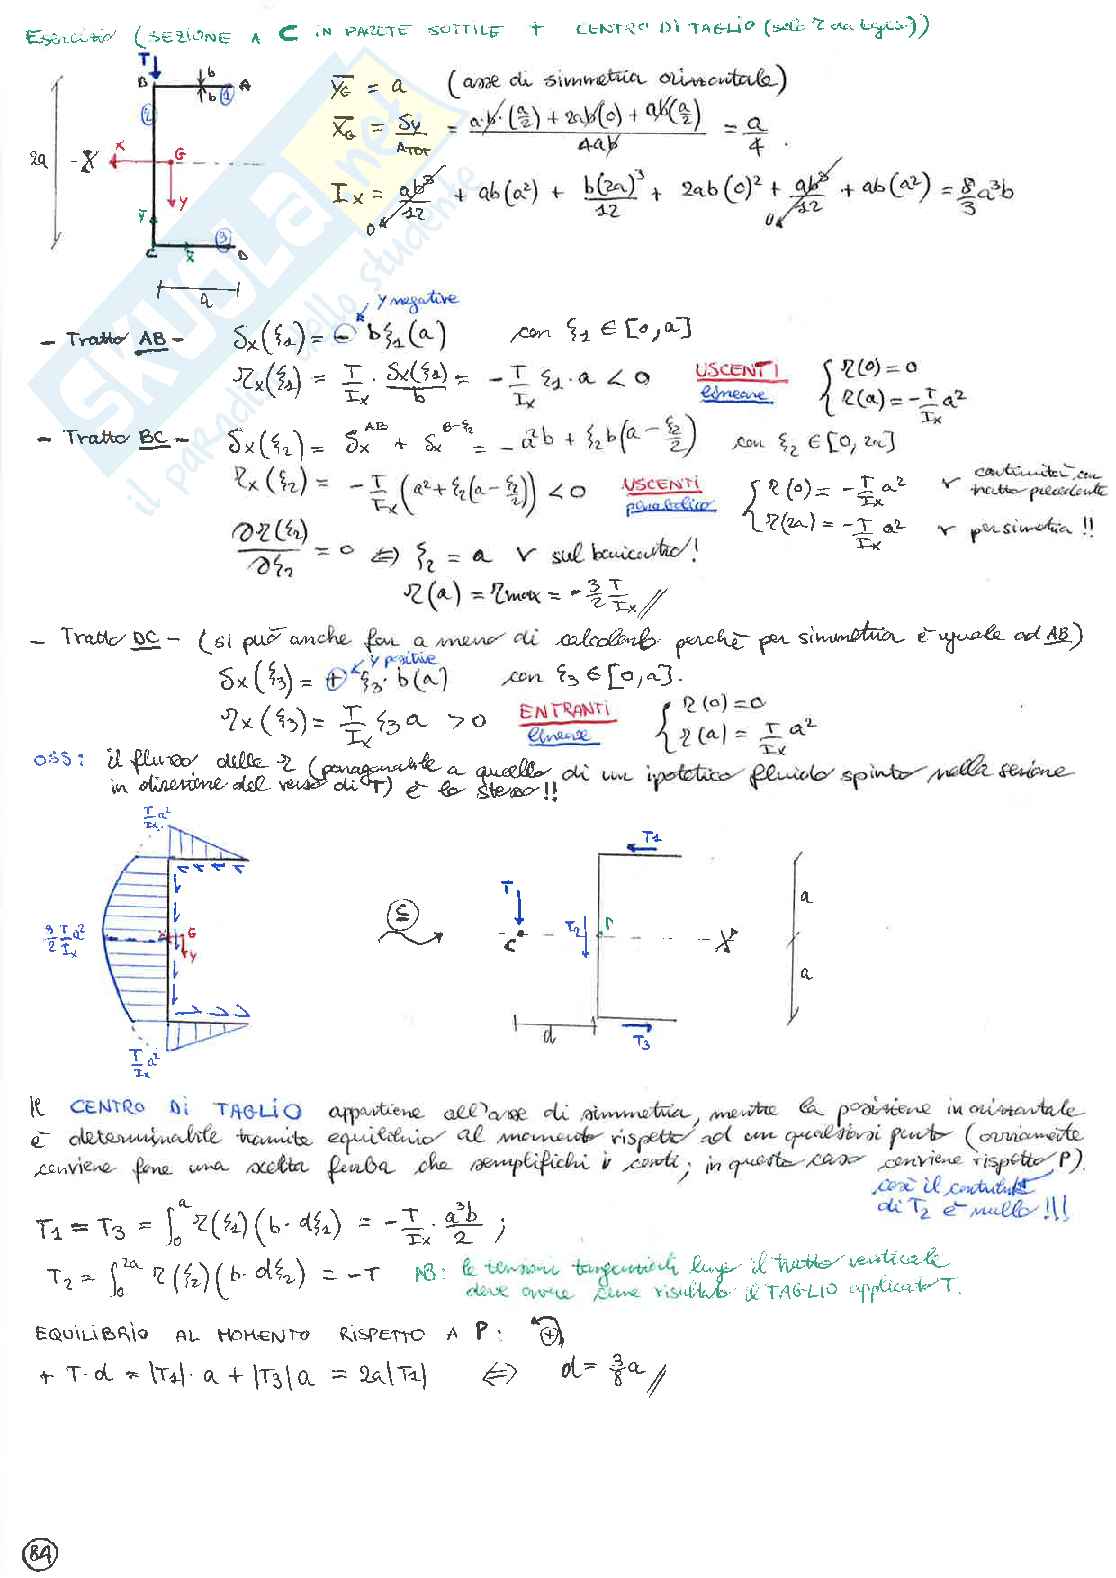 Esercizio (SEZIONE A C IN PARETE SOTTILE + CENTRO DI TAGLIO (solo τ da taglio))
T
B b A
b 1
2
2a X x G
y
y
3
C x D
a
ȳG = a (asse di simmetria orizzontale)
x̄G = Sy/ATOT = (a·b·(a/2) + 2ab(0) + ab(a/2))/4ab = a/4.
Ix = ab³/12 + ab(a²) + b(2a)³/12 + 2ab(0)² + ab³/12 + ab(a²) = 8/3 a³b
0 0
y negative
- Tratto AB - Sx(ξ1) = - bξ1(a) con ξ1 ∈ [0,a]
τx(ξ1) = T/Ix · Sx(ξ1)/b = - T/Ix ξ1·a < 0 USCENTI lineare { τ(0) = 0
τ(a) = - T/Ix a²
- Tratto BC - Sx(ξ2) = Sx^AB + Sx^B-ξ2 = - a²b + ξ2b(a - ξ2/2) con ξ2 ∈ [0, 2a]
τx(ξ2) = - T/Ix (a² + ξ2(a - ξ2/2)) < 0 USCENTI parabolico { τ(0) = - T/Ix a² v continuità con tratto precedente
τ(2a) = - T/Ix a² v per simmetria!!
∂τ(ξ2)/∂ξ2 = 0 ⇔ ξ2 = a v sul baricentro!
τ(a) = τmax = - 3/2 T/Ix //
- Tratto DC - (si può anche fare a meno di calcolarlo perchè per simmetria è uguale ad AB)
y positive
Sx(ξ3) = + ξ3·b(a) con ξ3 ∈ [0,a].
τx(ξ3) = T/Ix ξ3 a > 0 ENTRANTI lineare { τ(0) = 0
τ(a) = T/Ix a²
OSS: il flusso delle τ (paragonabile a quello di un ipotetico fluido spinto nella sezione
in direzione del verso di T) è lo stesso!!
T/Ix a²
3/2 T/Ix a² G
y
T/Ix a²
T1
T
C T2 P X
d T3
a
a
Il CENTRO DI TAGLIO appartiene all'asse di simmetria, mentre la posizione in orizzontale
è determinabile tramite equilibrio al momento rispetto ad un qualsiasi punto (ovviamente
conviene fare una scelta furba che semplifichi i conti; in questo caso conviene rispetto P).
così il contributo
di T2 è nullo!!!
T1 = T3 = ∫₀ᵃ τ(ξ1)(b·dξ1) = - T/Ix · a³b/2 ;
T2 = ∫₀²ᵃ τ(ξ2)(b·dξ2) = -T NB: le tensioni tangenziali lungo il tratto verticale
deve avere come risultato il TAGLIO applicato T.
EQUILIBRIO AL MOMENTO RISPETTO A P: +
+ T·d = |T1|·a + |T3|a = 2a|T1| ⇔ d = 3/8 a //
84